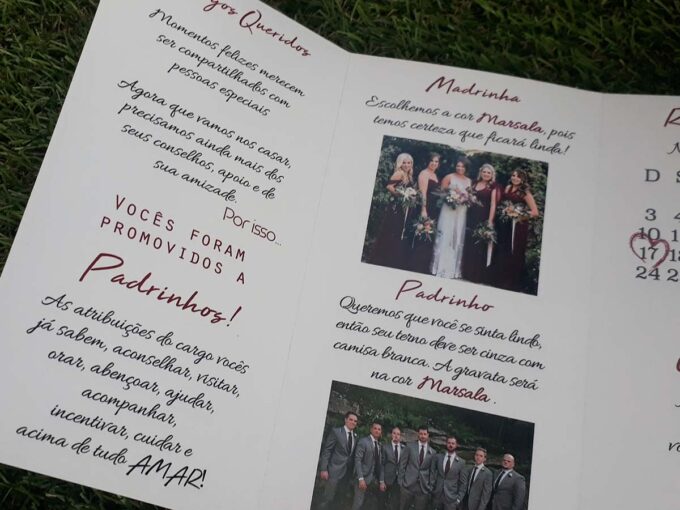 gos Queridos
Momentos felizes merecem
ser compartilhados com
pessoas especiais
Agora que vamos nos casar,
precisamos ainda mais dos
seus conselhos, apoio e de
sua amizade.
Por isso...
VOCÊS FORAM
PROMOVIDOS A
Padrinhos!
As atribuições do cargo vocês
já sabem, aconselhar, visitar,
orar, abençoar, ajudar,
acompanhar,
incentivar, cuidar e
acima de tudo AMAR!
Madrinha
Escolhemos a cor Marsala, pois
temos certeza que ficará linda!
Padrinho
Queremos que você se sinta lindo,
então seu terno deve ser cinza com
camisa branca. A gravata será
na cor Marsala.
D S
3 4
10 11
17 18
24 25